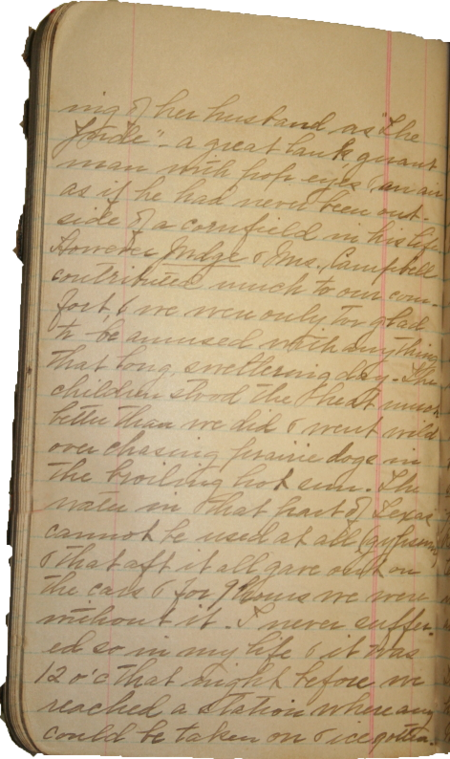 ing of her husband as "The
Jude" - a great lank gaunt
man with pop eyes & an air
as if he had never been out-
side of a cornfield in his life.
However Judge & Mrs. Campbell
contributed much to our com-
fort, & we were only too glad
to be amused with anything
that long, sweltering day. The
children stood the heat much
better than we did & went wild
over chasing prairie dogs in
the broiling hot sun. The
water in that part of Texas
cannot be used at all (gypsum)
& that aft it all gave out on
the cars & for 9 hours we were
without it. I never suffer-
ed so in my life & it was
12 o'c that night before we
reached a station where any
could be taken on & ice gotten.